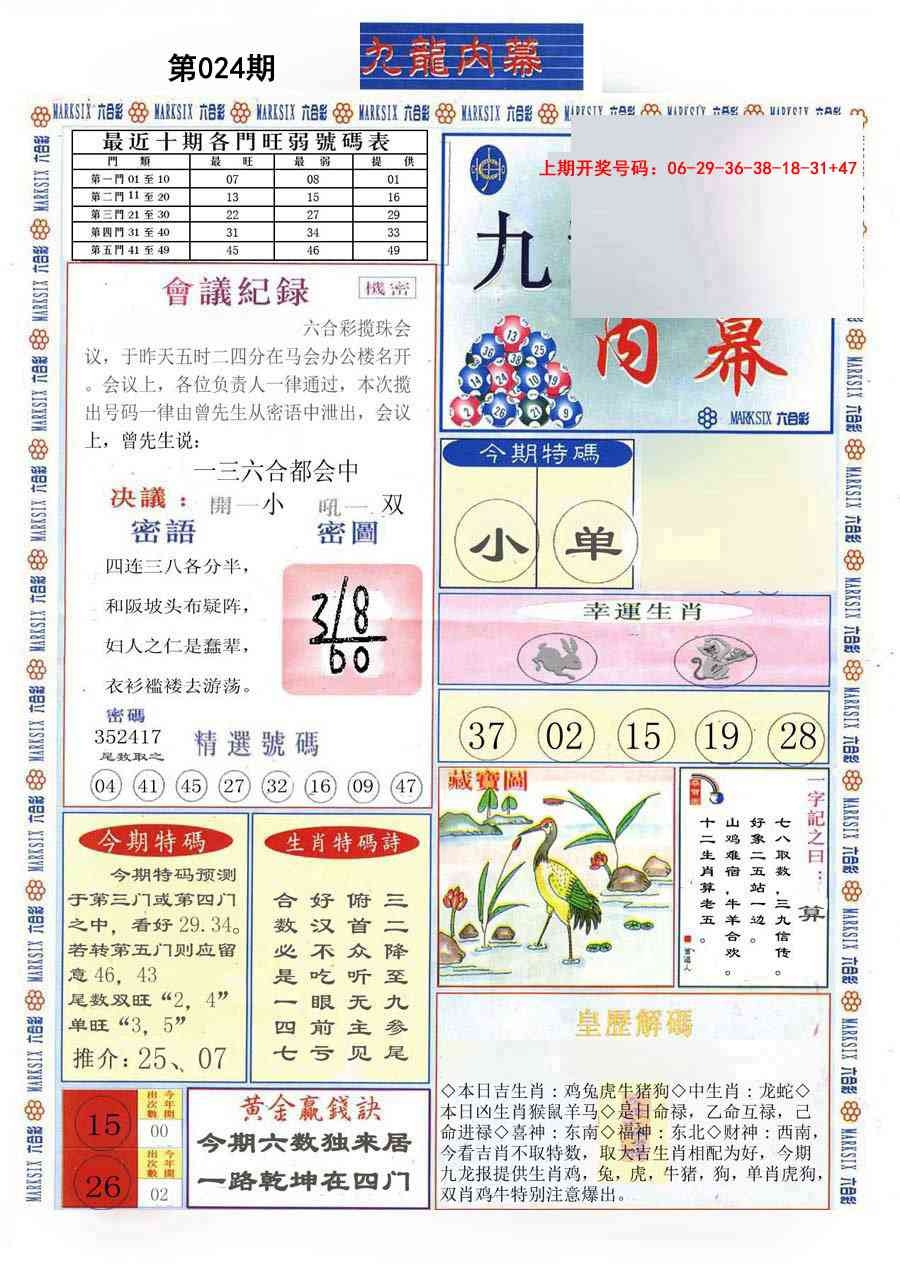 第024期
九龍内幕
MARKSIX 六合彩 MARKSIX 六合彩 MARKSIX 六合彩 MARKSIX 六合彩 MARKSIX 六合彩 MARKSIX 六合彩 MARKSIX 六合彩 MARKSIX 六合彩
最近十期各門旺弱號碼表
門類 最旺 最弱 提供
第一門 01 至 10 07 08 01
第二門 11 至 20 13 15 16
第三門 21 至 30 22 27 29
第四門 31 至 40 31 34 33
第五門 41 至 49 45 46 49
上期开奖号码：06-29-36-38-18-31+47
九
内幕
13
36 38 25
14 24 10 19
2 26 21 9
MARKSIX 六合彩
會議紀録
機密
六合彩攬珠会
议，于昨天五时二四分在马会办公楼名开
。会议上，各位负责人一律通过，本次攬
出号码一律由曾先生从密语中泄出，会议
上，曾先生说：
一三六合都会中
决議：開一小 吼一双
密語 密圖
四连三八各分半，
和阪坡头布疑阵，
妇人之仁是蠢辈，
衣衫褴褛去游荡。
318
60
密碼
352417
尾数取之
精選號碼
04 41 45 27 32 16 09 47
今期特碼
小 单
幸運生肖
37 02 15 19 28
藏寶圖
一字記之曰：
算
七八取数，三九信传。
好象二五站一边。
山鸡难宿，牛羊合欢。
十二生肖算老五。
今期特碼
今期特码预测
于第三门或第四门
之中，看好 29.34。
若转第五门则应留
意 46，43
尾数双旺“2，4”
单旺“3，5”
推介：25、07
生肖特碼詩
三二降至九参尾
俯首众听无主见
好汉不吃眼前亏
合数必是一四七
皇歷解碼
◇本日吉生肖：鸡兔虎牛猪狗◇中生肖：龙蛇◇
本日凶生肖猴鼠羊马◇是日命禄，乙命互禄，己
命进禄◇喜神：东南◇福神：东北◇财神：西南，
今看吉肖不取特数，取大吉生肖相配为好，今期
九龙报提供生肖鸡，兔，虎，牛猪，狗，单肖虎狗，
双肖鸡牛特别注意爆出。
15
今年開出次數
00
26
今年開出次數
02
黄金赢錢訣
今期六数独来居
一路乾坤在四门